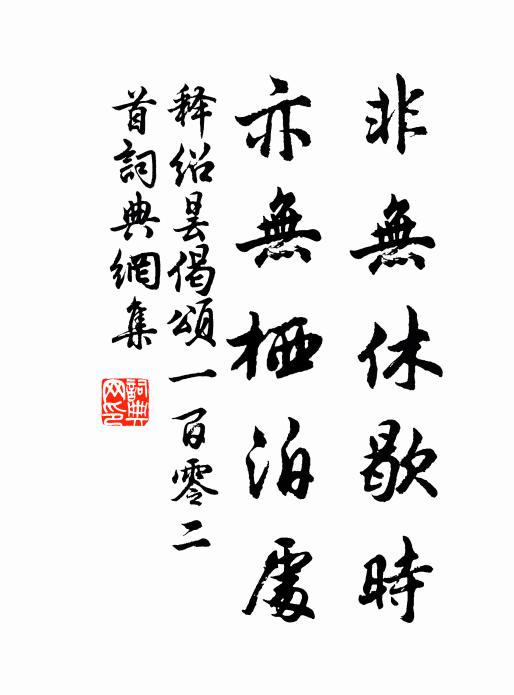 非無休歇時
亦無栖泊處
释紹曇偈頌一百零二
首詞典網集
詞典
网印